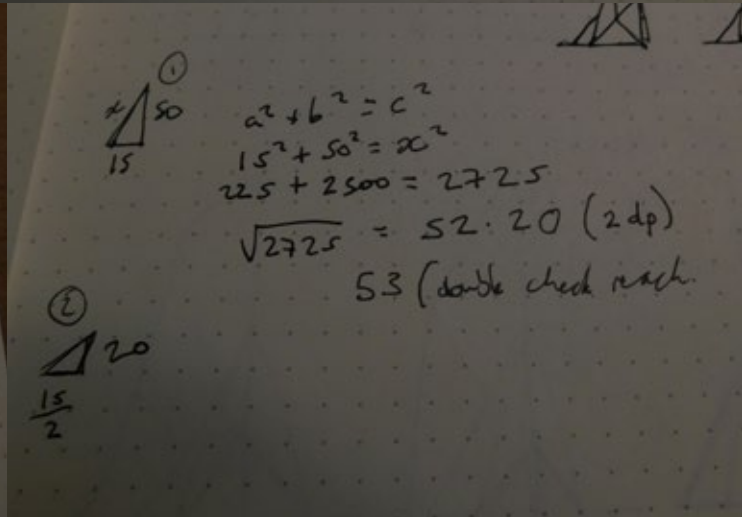 ①
x 50
15
a² + b² = c²
15² + 50² = x²
225 + 2500 = 2725
√2725 = 52.20 (2dp)
53 (double check reach.
②
20
15
2